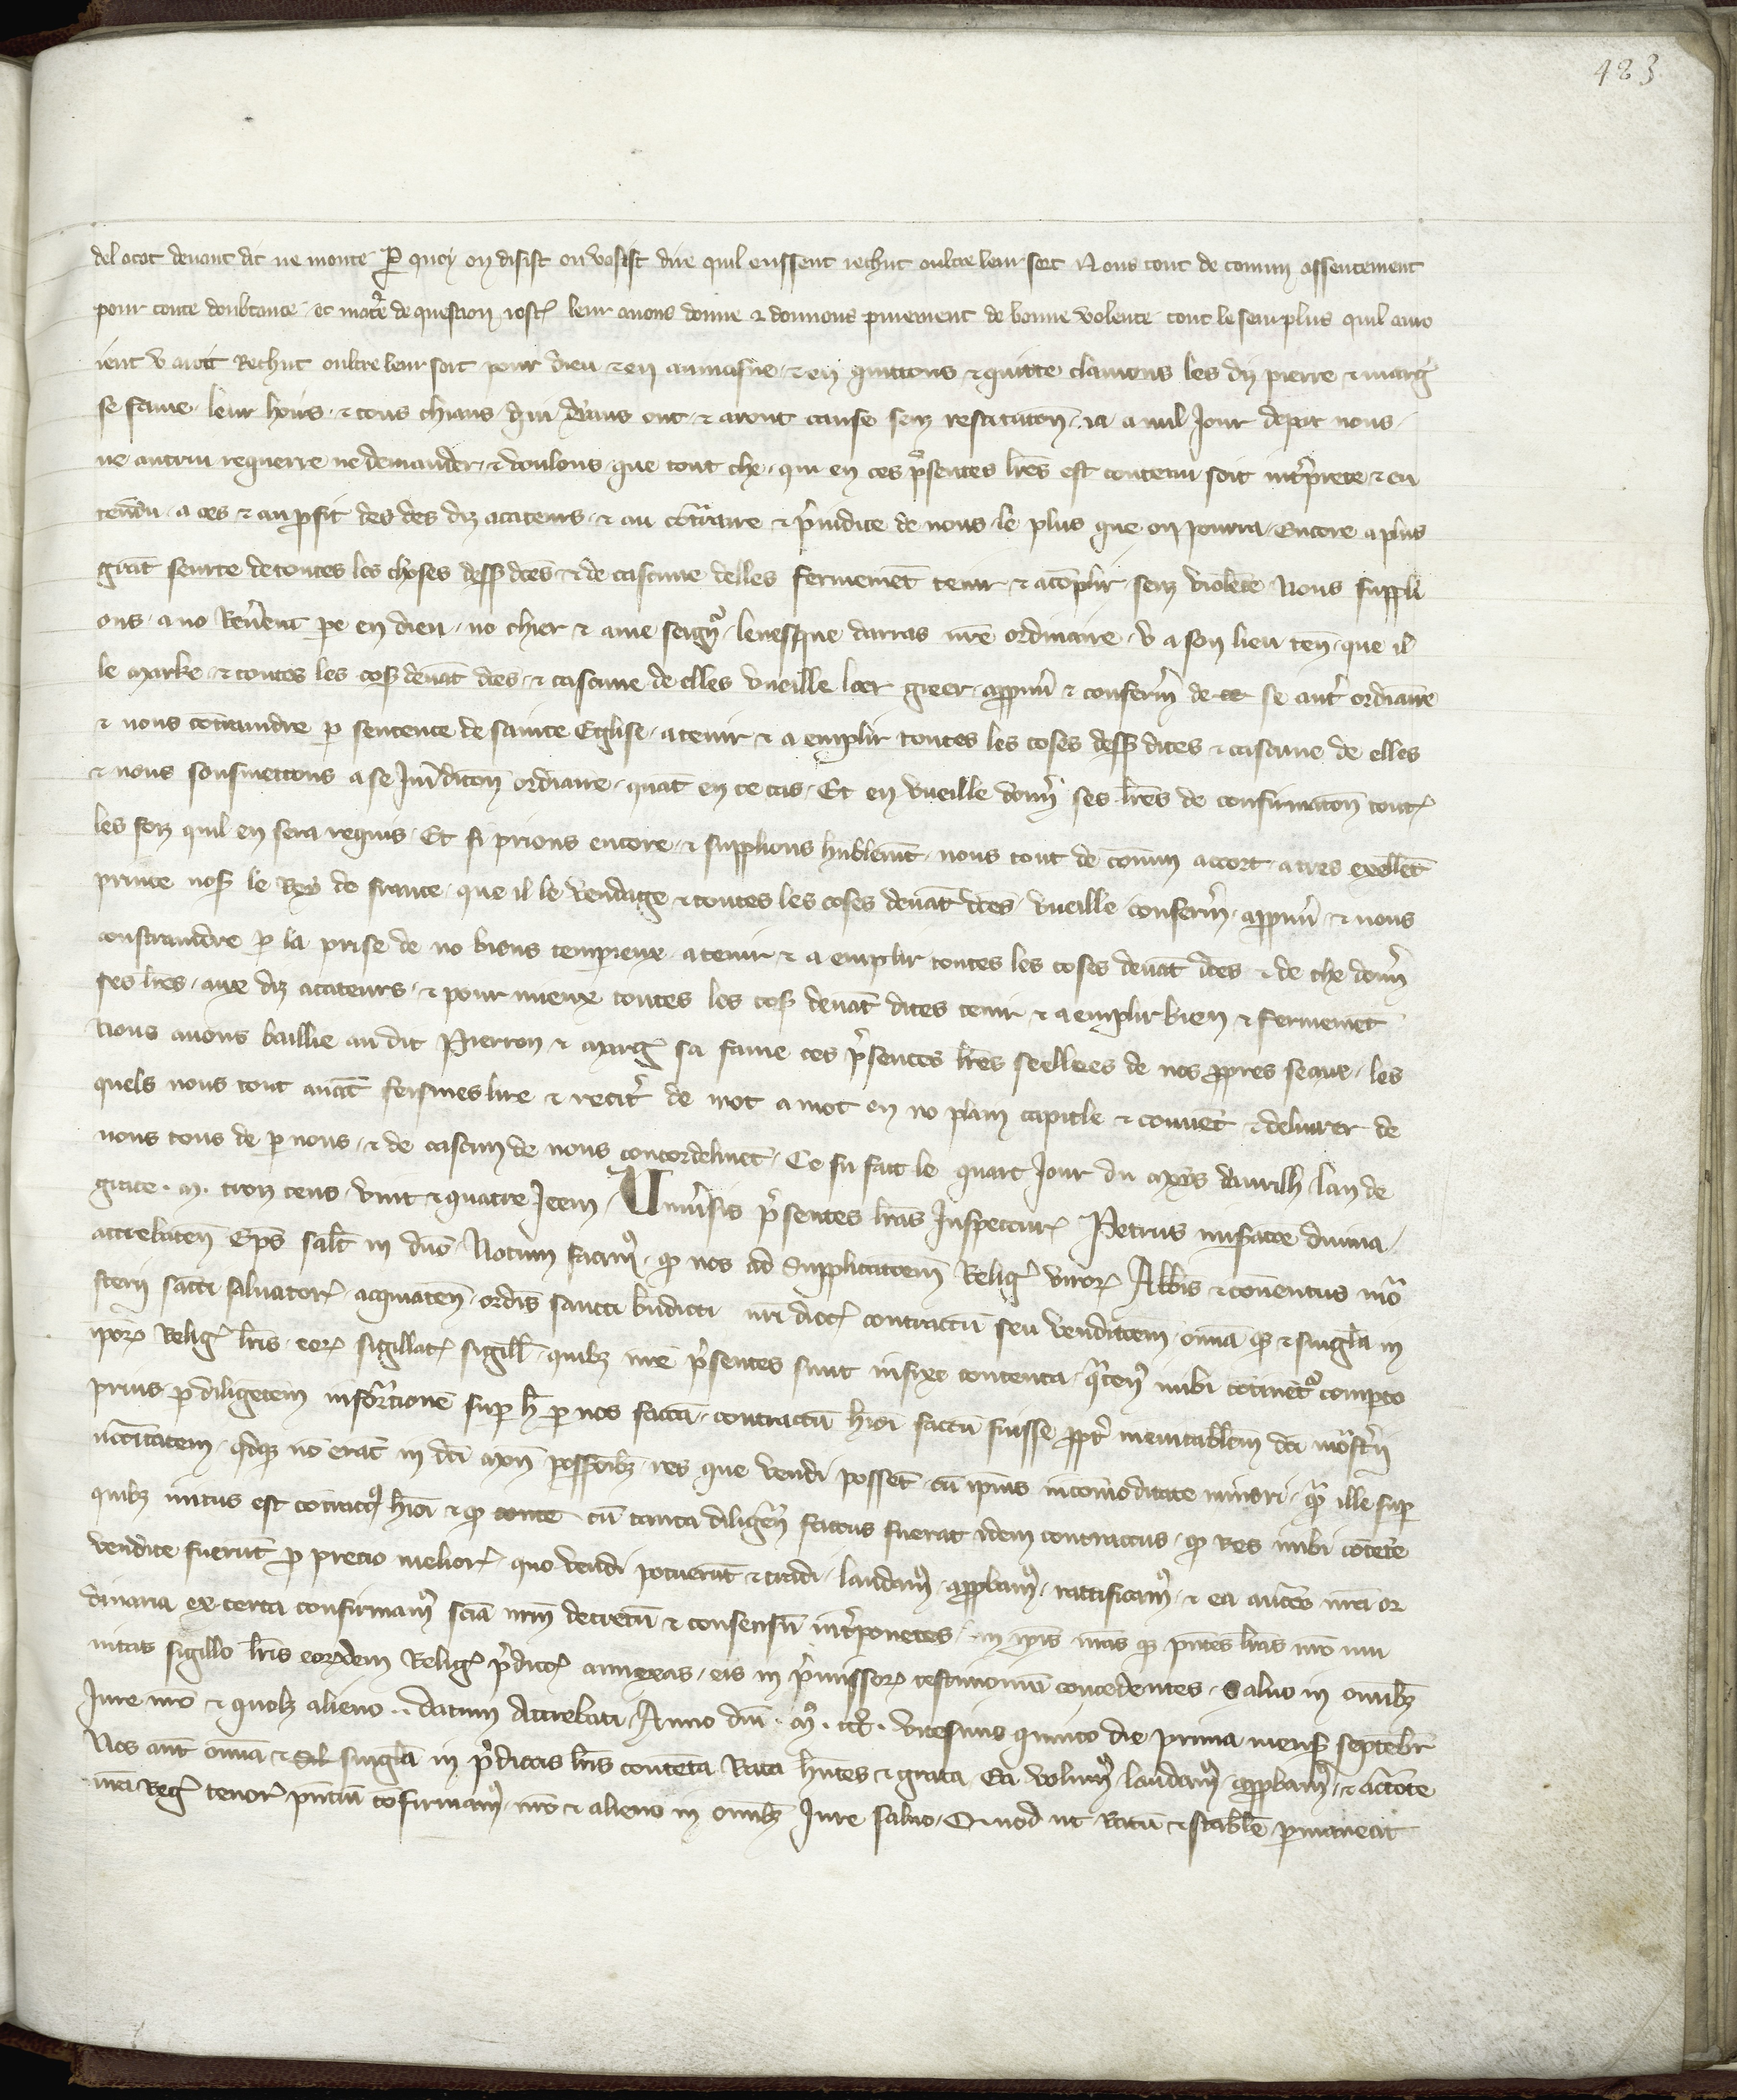 483
del acat devant dit ne monte P quoy on desist ou vosist dire quil eussent rechut oultre leur sort Nous tout de comun assentement
pour toute doubtance et matere de question oster leur avons donne & donnons purement de bonne volente tout le seurplus quil avro
ient v aroit Rechut oultre leur sort pour dieu & en aumosne & en quittons & quitte clamons les diz pierre & marg
se fame leur hoirs & tous chiaus qui deaus ont & aront cause senz restitution ia a nul Jour depar nous
ne autrui requerre ne demander & voulons que tout che qui en ces presentes lres est contenu soit interprete & en
tendu a ces & au profit des des diz acateurs & au contraire & preiudice de nous le plus que on pourra Encore a plus
grant seurte de toutes les choses dessus dces & de cascune delles fermement tenir & acomplir senz violence Nous suppli
ons a no Reverent pe en dieu no chier & ame seigneur levesque darras nre ordinaire v a son lieu ten que il
le marke & toutes les coses devant dces & cascune de elles vueille loer greer approuver & confermer de se aucte ordinaire
& nous contraindre p sentence de sainte Eglise a tenir & a emplir toutes les coses dessus dites & cascune de elles
& nous sousmettons a se Juridicion ordinaire quant en ce cas Et en vueille donner ses lres de confirmation toutes
les foiz quil en sera requis Et si prions encore & supplions humblement nous tout de comun accort a tres excellent
prince nos le Roy de france que il le vendage & toutes les coses devant dces vueille confermer approuver & nous
constraindre p la prise de no biens temporeux a tenir & a emplir toutes les coses devant dces & de che donner
ses lres aux diz acateurs & pour mieux toutes les coses devant dites tenir & a emplir bien & fermement
Nous avons baillie au dit Pierron & marg sa fame ces presentes lres seellees de nos propres seaus les
quels nous tout avant feismes lire & reciter de mot a mot en no plain capitle & couvent & delivrer de
nous tous de p nous & de cascun de nous concordelment Ce fu fait le quart Jour du mois davrilh lan de
grace m troiz cens vint & quatre Item Universis presentes lras Inspecturis Petrus miseratione divina
attrebaten Eps salt in dno Notum facimus quod nos ad Supplicationem Religiosorum virorum Abbis & conventus mona
sterii sancti salvatoris acquicaten ordis sancti bndicti nri dioc contractum seu venditionem omnia que & singula in
ipsorum Relig lris eorum sigillat sigillis quibz nre presentes sunt infixe contenta quatenus inibi continetur comperto
prius p diligentem informacionem sup hoc p nos factam contractum hmoi factum fuisse propter inevitabilem dci monasterii
necessitatem quodque non erant in dci mon possessionibz res que vendi possent cum ipsius incomoditate minori quam ille sup
quibz initus est contractus hmoi & quod conte cum tanta diligencia factus fuerat idem contractus quod Res inibi contente
vendite fuerunt p precio meliori quo vendi potuerunt & tradi laudamus approbamus rattificamus & ea auctate nra or
dinaria ex certa confirmamus scientia nrm decretum & consensum interponentes in ipsis nras que pntes lras nro mu
nitas sigillo lris eorumdem Relig predictorum annexas eis in premissorum testimonium concedentes Salvo in omnibz
Jure nro & quolz alieno datum Attrebati Anno dni m ccc vicesimo quinto die prima mensis septembr
Nos aut omnia & singula in predictis lris contenta Rata hntes & grata Ea volumus laudamus approbamus & auctate
nra Regia tenore pntium confirmamus nro & alieno in omnibz Jure salvo Quod ut Ratum & stabile permaneat